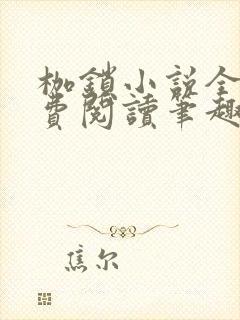 枷鎖小説全
費閱讀筆趣
焦尔